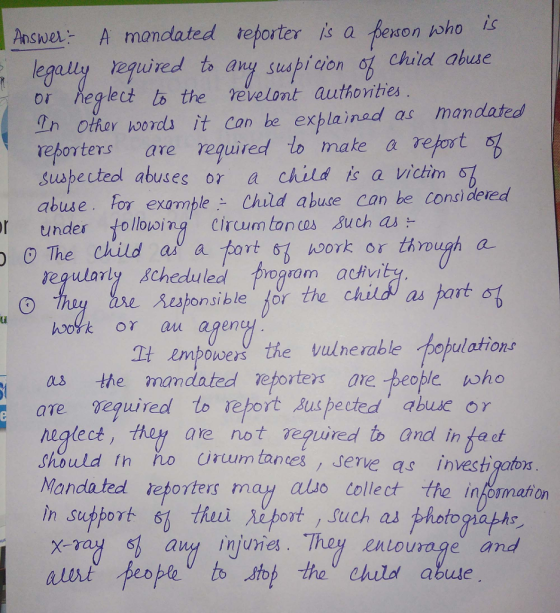 Answer:- A mandated reporter is a person who is
legally required to any suspicion of child abuse
or neglect to the revelant authorities.
In other words it can be explained as mandated
reporters are required to make a report of
suspected abuses or a child is a victim of
abuse. For example :- child abuse can be considered
under following circumtances such as :-
① The child as a part of work or through a
regularly scheduled program activity.
① They are responsible for the child as part of
work or an agency.
It empowers the vulnerable populations
as the mandated reporters are people who
are required to report suspected abuse or
neglect, they are not required to and in fact
should in no circumtances, serve as investigators.
Mandated reporters may also collect the information
in support of their report, such as photographs,
x-ray of any injuries. They encourage and
alert people to stop the child abuse.